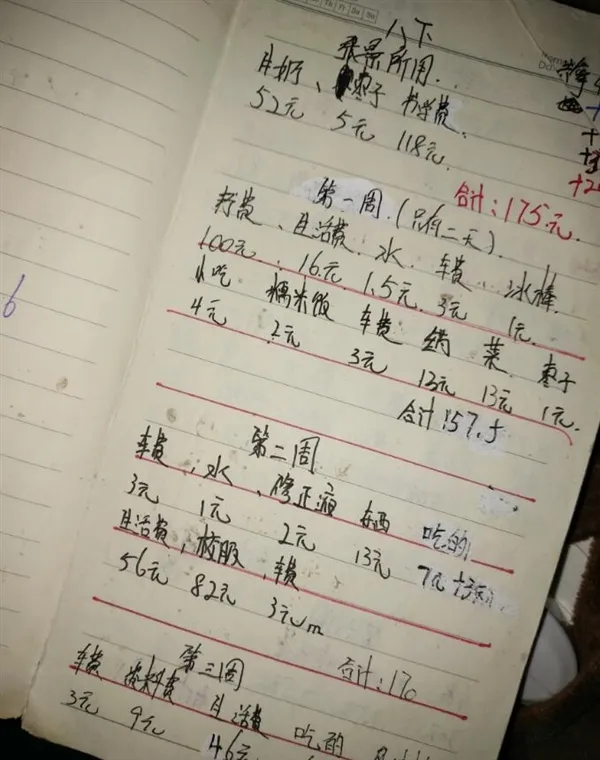 八下
张景所用.
牛奶、枣子 书学费.
52元 5元 118元.
合计:175元.
第一周.(只有二天).
生活费、水、车费、冰棒.
100元. 16元. 1.5元. 3元 1元.
小吃 糯米饭 车费 菜. 枣子
4元 2元 3元 13元 13元 1元.
合计:157.5
第二周
车费、水、修正液 吃的
3元 1元 2元 13元
生活费,校服,车费
56元 82元 3元
合计:170
第三周
车费 资料费 生活费 吃的
3元 9元 46元
6